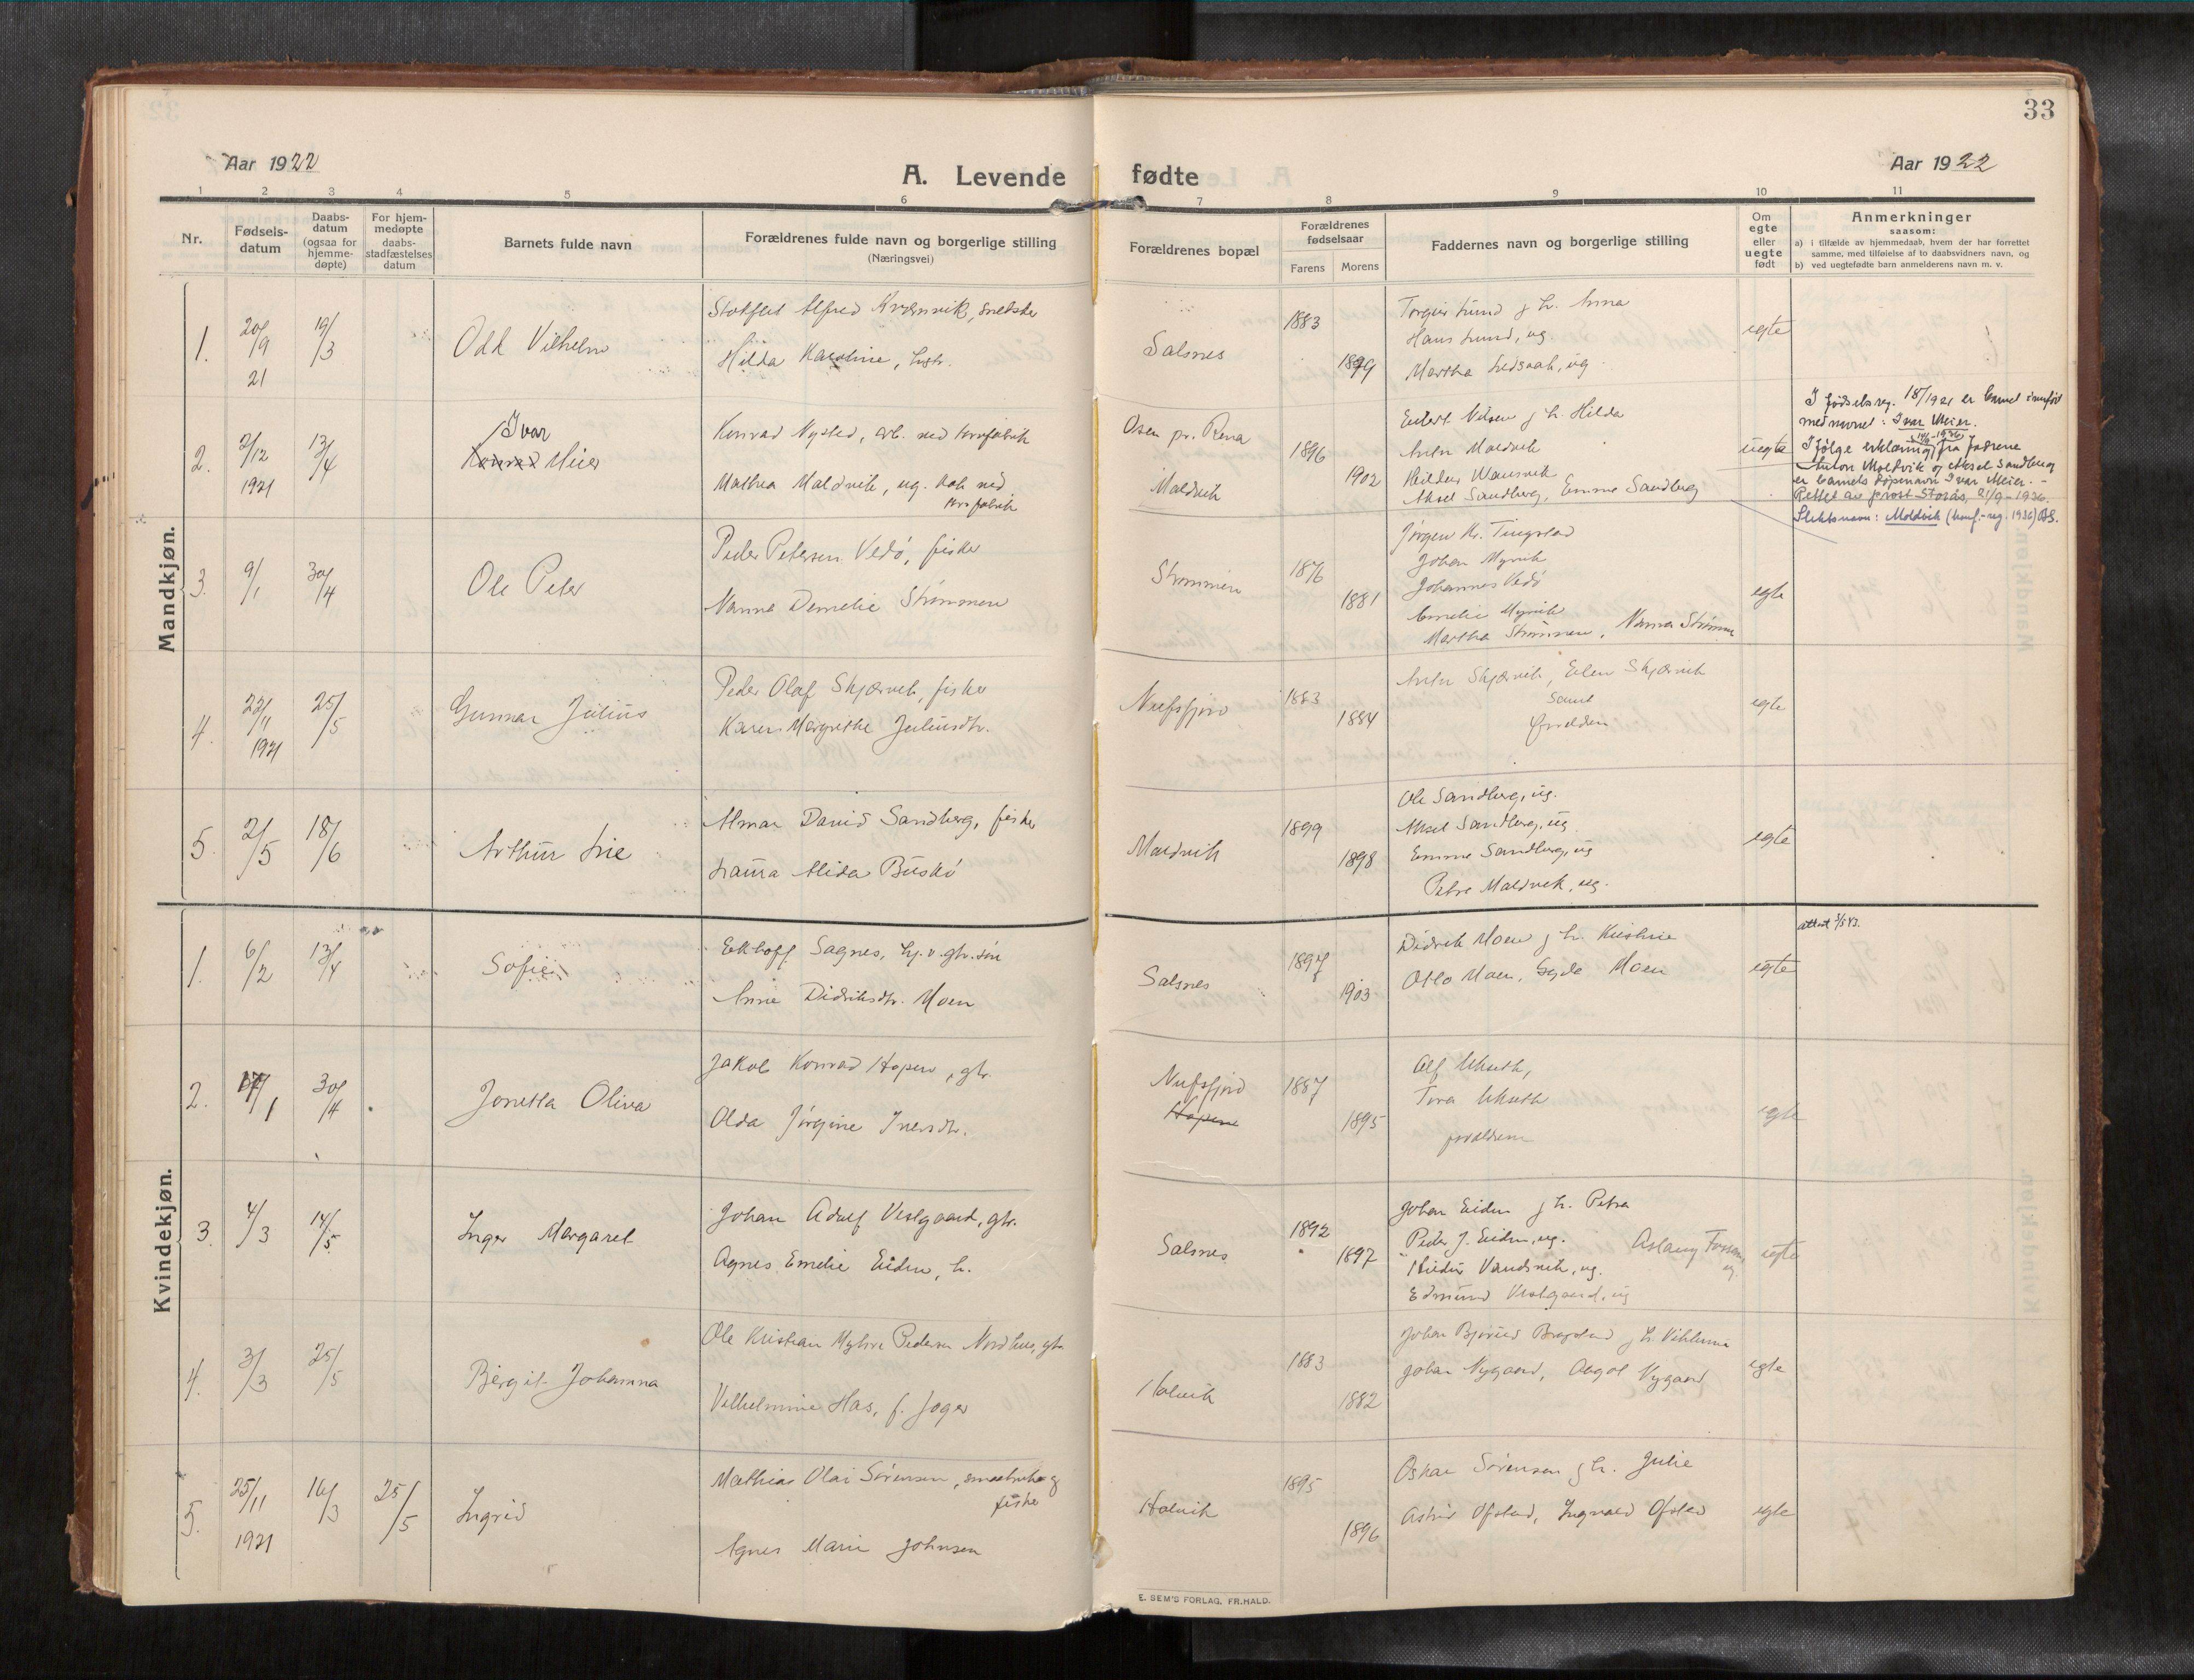 33
Aar 1922
A. Levende fødte
Aar 1922
1 2 3 4 5 6 7 8 9 10 11
Nr.
Fødsels-
datum
Daabs-
datum
(ogsaa for
hjemme-
døpte)
For hjem-
medøpte
daabs-
stadfæstelses
datum
Barnets fulde navn
Forældrenes fulde navn og borgerlige stilling
(Næringsvei)
Forældrenes bopæl
Forældrenes
fødselsaar
Farens
Morens
Faddernes navn og borgerlige stilling
Om
egte
eller
uegte
født
Anmerkninger
saasom:
a) i tilfælde av hjemmedaab, hvem der har forrettet
samme, med tilføielse af to daabsvidners navn, og
b) ved uegtefødte barn anmelderens navn m. v.
Mandkjøn.
1. 20/9 21 19/3
Odd Vilhelm
Alfred Kvernvik, snekker
Hilda Karoline, hstr.
Salsnes
1883
1899
Torgier Lund j h. Anna
Hans Lund, ug
Martha, ug
egte
2. 2/12 1921 13/4
Ivar
Konrad Meier
Konrad Nysted, arb. ved
Mathea Maldvik, ug. kok ved
Osen pr. Rena
Maldvik
1896
1902
Nilsen j h. Hilda
Anton Maldvik
Aksel Sandberg, Emma Sandberg
uegte
I fødselsreg. 18/1921 er barnet innført
med navnet: Ivar Meier.
I følge erklæring fra fadrene
Anton Moldvik og Aksel Sandberg
er barnets døpenavn Ivar Meier. -
Rettet av prost Storås, 21/9-1936.
Slektsnavn: Moldvik (konf.-reg. 1936)
3. 9/1 30/4
Ole Peter
Peder Petersen Vedö, fisker
Nanna Strømmen
Strømmen
1876
1881
Jørgen Kr. Tingstad
Johan Myrvik
Johannes Vedö
Amelie Myrvik
Martha Strømmen, Nanna Strømmen
egte
4. 22/11 1921 25/5
Gunnar Julius
Peder Olaf Skjærvik, fisker
Karen Margrethe Juliusdtr.
1883
1884
Anton Skjærvik, Elen Skjærvik
samt
egte
5. 2/5 18/6
Arthur
Almar David Sandberg, fisker
Laura Alida Buskö
Maldvik
1899
1898
Ole Sandberg, ug.
Aksel Sandberg, ug
Emma Sandberg, ug
Petra Maldvik, ug.
egte
Kvindekjøn.
1. 6/2 13/4
Sofie
Ekhoff Sagnes, hj. v. gbr. sön
Anna Didriksdtr. Moen
Salsnes
1897
1903
Didrik Moen j h. Kristine
Otto Moen, Moen
egte
attest 3/5 43.
2. 17/1 30/4
Jonetta Oliva
Jakob Konrad Hopen, gbr.
Olda Jörgine Iversdtr.
Hopen
1887
1895
Alf
Tora
forældrene
egte
3. 4/3 14/5
Inger Margaret
Johan Adolf Vestgaard, gbr.
Agnes Emelie Eidem, h.
Salsnes
1892
1897
Johan Eidem j h. Petra
Peder J. Eidem, ug.
Aslaug
ug.
Vandsvik, ug.
Edmund Vestgaard, ug
egte
4. 3/3 25/5
Bergit Johanna
Ole Kristian Pedersen Nordhus, gbr.
Vilhelmine Has, f.
Holvik
1883
1882
Johan j h. Vilhelmine
Johan Nygaard, Nygaard
egte
5. 25/11 1921 16/3 25/5
Ingrid
Mathias Olai Sörensen, smaabruker og
fisker
Agnes Marie Johnsen
Holvik
1895
1896
Oskar Sörensen j h. Julie
Astrid Ofstad, Ingvald Ofstad
egte
E. SEM'S FORLAG, FR.HALD.